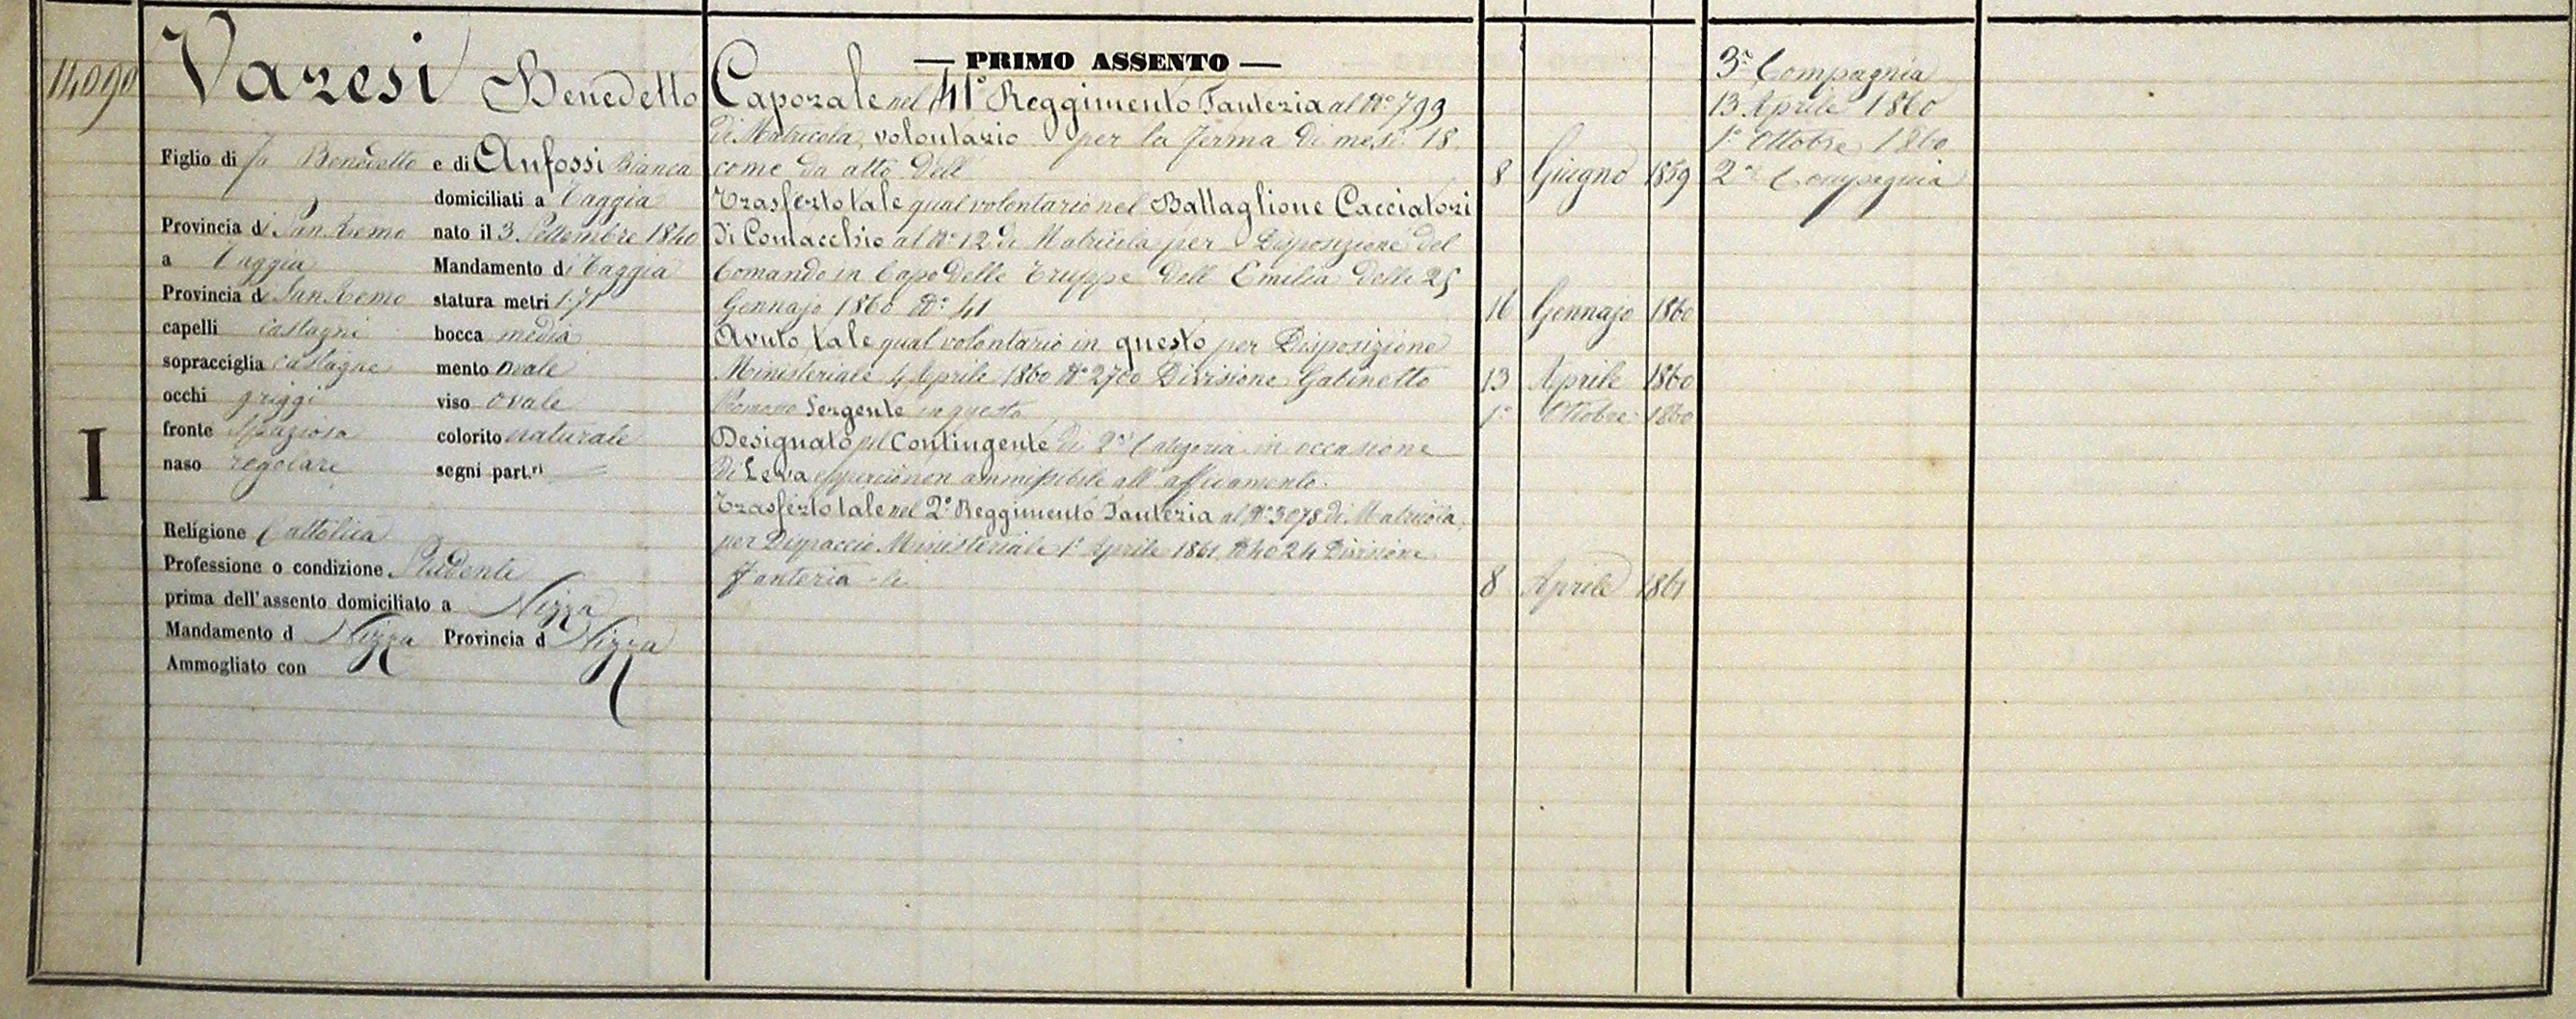 14090
Varesi Benedetto
Figlio di fu Benedetto e di Anfossi Bianca
domiciliati a Taggia
Provincia di San Remo nato il 3 Settembre 1840
a Taggia Mandamento di Taggia
Provincia di San Remo statura metri 1.71
capelli castagni bocca media
sopracciglia castagne mento ovale
occhi griggi viso ovale
fronte spaziosa colorito naturale
naso regolare segni part.ri
I
Religione Cattolica
Professione o condizione Studente
prima dell'assento domiciliato a Nizza
Mandamento d Nizza Provincia d Nizza
Ammogliato con
— PRIMO ASSENTO —
Caporale nel 41° Reggimento Fanteria al N° 799
di Matricola, volontario per la ferma di mesi 18.
come da atto dell' 8 Giugno 1859
Trasferto tale qual volontario nel Battaglione Cacciatori
di Comacchio al N° 12 di Matricola per Disposizione del
Comando in Capo delle Truppe dell' Emilia delli 25
Gennajo 1860 N° 41 16 Gennajo 1860
Avuto tale qual volontario in questo per Disposizione
Ministeriale 4 Aprile 1860 N° 2700 Divisione Gabinetto 13 Aprile 1860
Promosso Sergente in questo 1° Ottobre 1860
Designato pel Contingente di 2a Categoria in occasione
di Leva epperciò non ammissibile all'
Trasferto tale nel 2° Reggimento Fanteria al N° 3078 di Matricola,
per Dispaccio Ministeriale 1° Aprile 1861 N° 4024 Divisione
Fanteria 8 Aprile 1861
3a Compagnia
13 Aprile 1860
1° Ottobre 1860
2a Compagnia